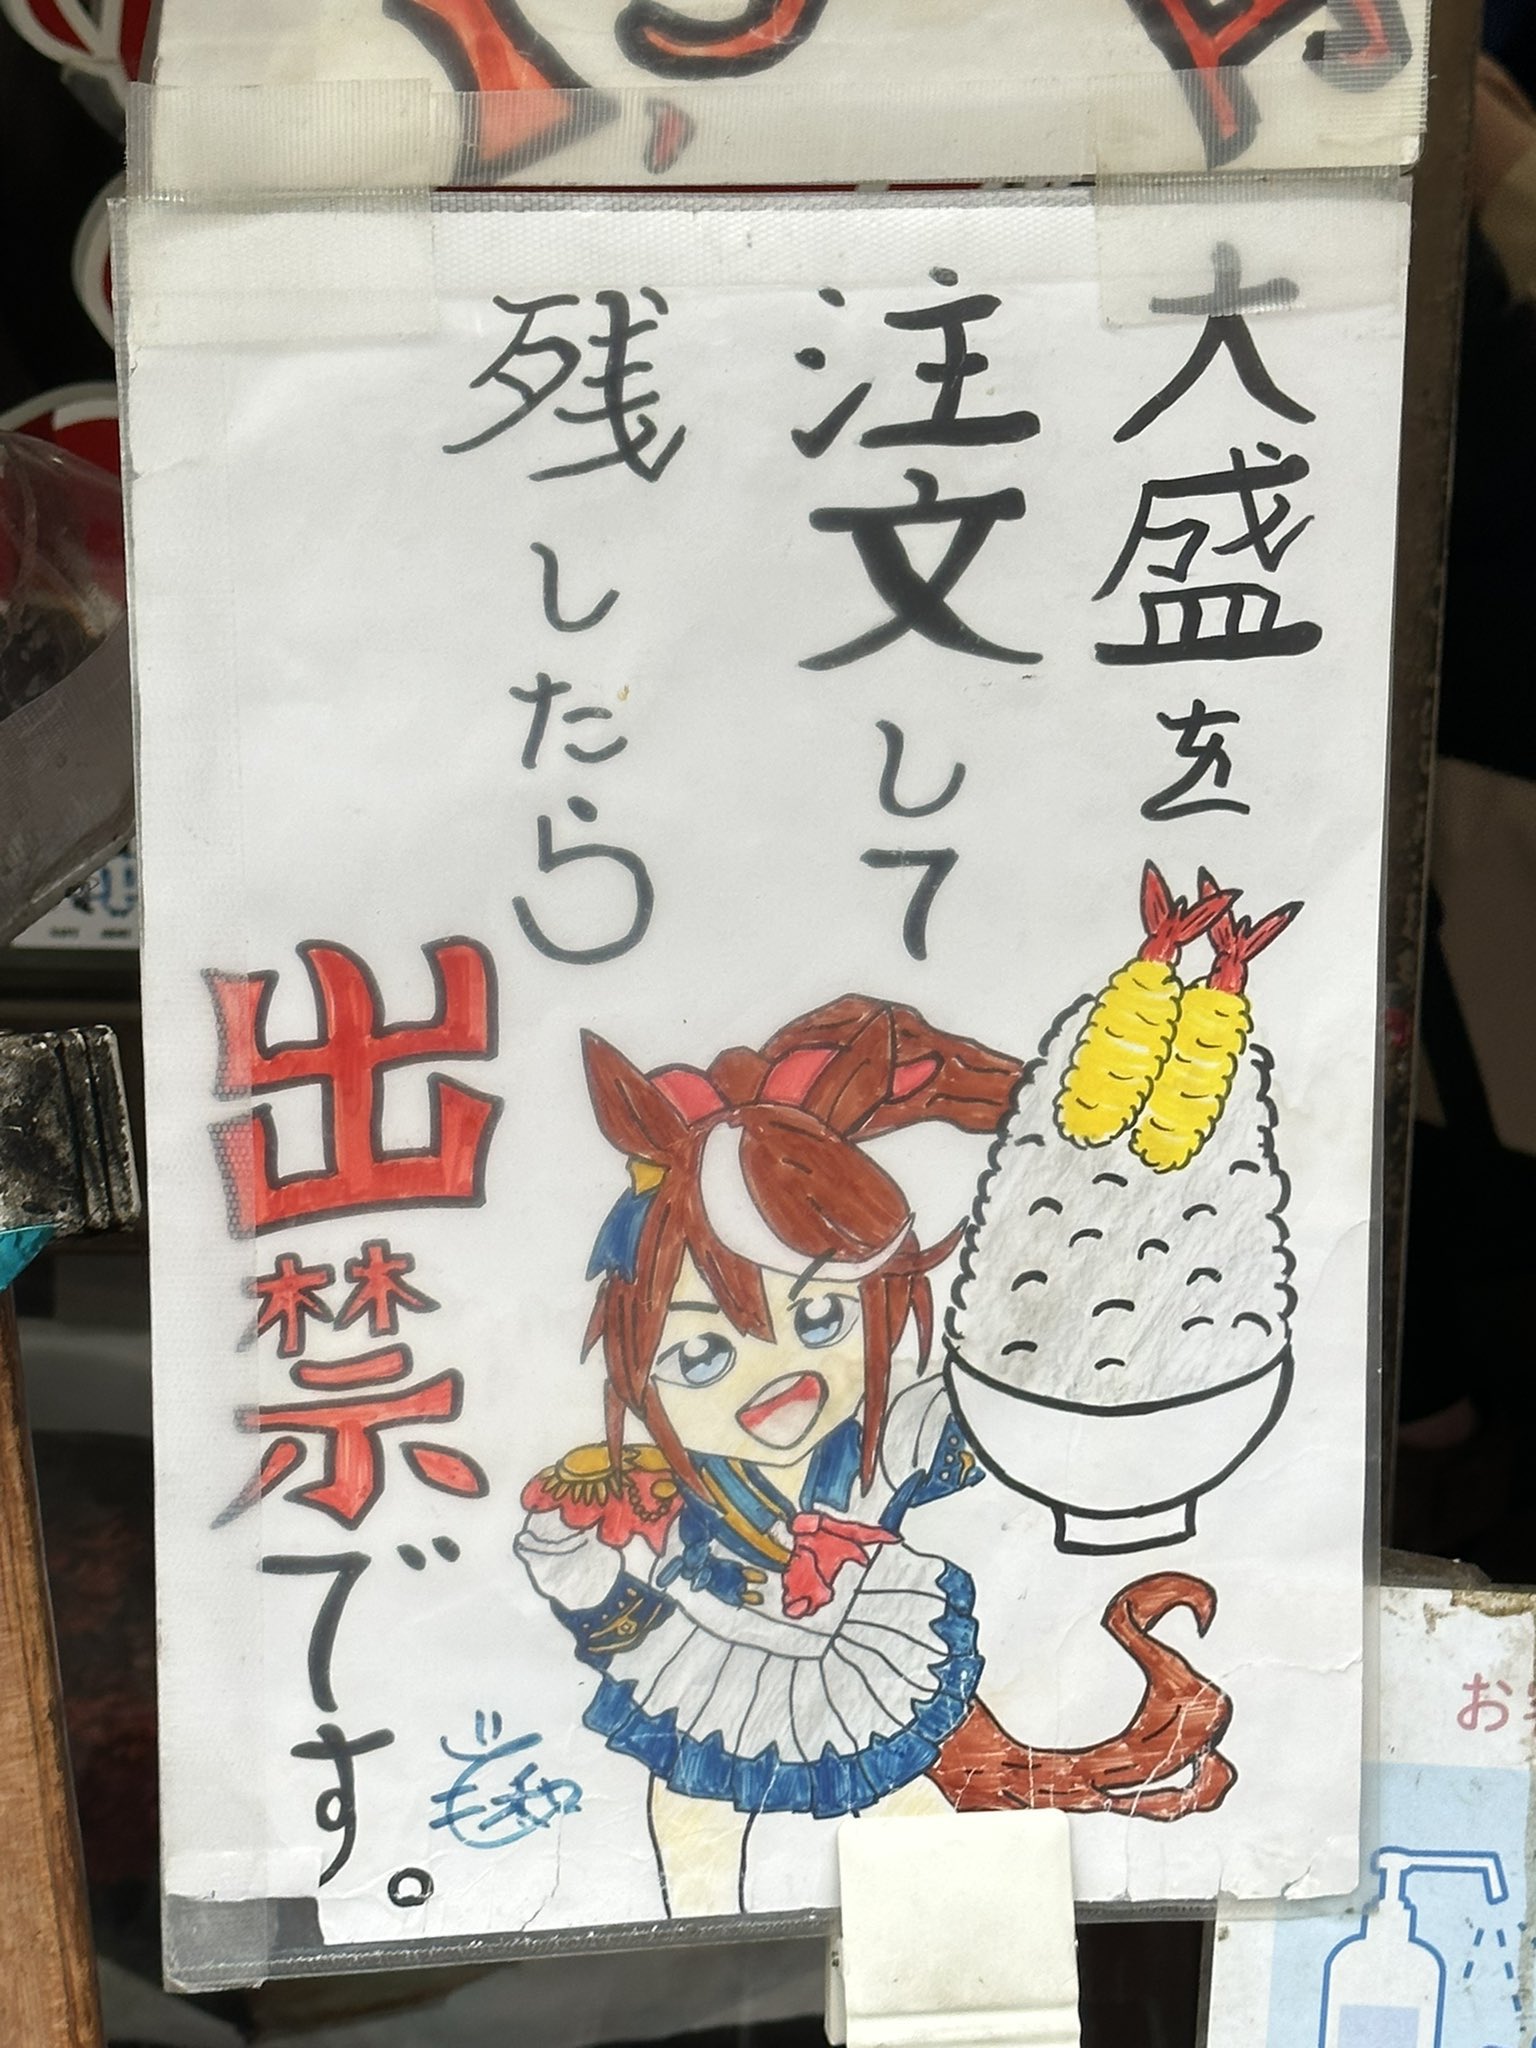 大盛を
注文して
残したら
出禁です。